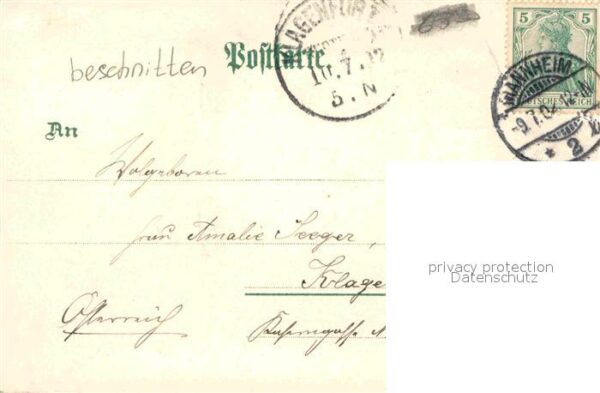 KLAGENFURT
10.7.02
5.N
5
beschnitten
Postkarte.
MANNHEIM
-9.7.02. 12-M
* 2
DEUTSCHES REICH
An
Wolgeboren
Frau Amalie Seeger,
Klage
privacy protection
Datenschutz
Österreich